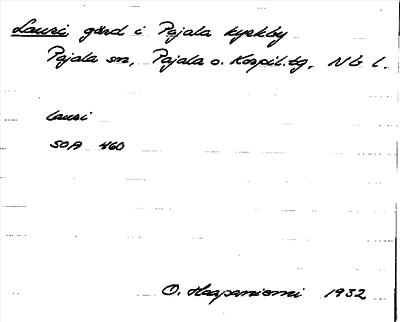 Lauri gård i Pajala kyrkby
Pajala sn, Pajala o. Korpil. tg. Nb l.
lauri
SOA 460
O. Haapaniemi 1932